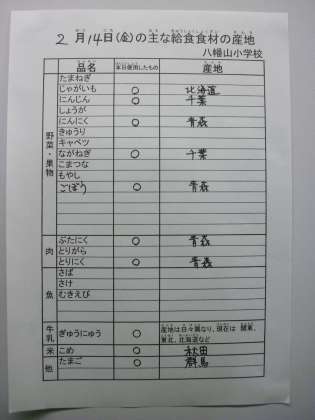 2月14日(金)の主な給食食材の産地
八幡山小学校
品名 本日使用したもの 産地
野菜・果物
たまねぎ
じゃがいも ○ 北海道
にんじん ○ 千葉
しょうが
にんにく ○ 青森
きゅうり
キャベツ
ながねぎ ○ 千葉
こまつな
もやし
ごぼう ○ 青森
肉
ぶたにく ○ 青森
とりがら ○
とりにく ○ 青森
魚
さば
さけ
むきえび
牛乳 ぎゅうにゅう ○ 産地は日々異なり、現在は 関東、
東北、北海道など
米 こめ ○ 秋田
他 たまご ○ 群馬